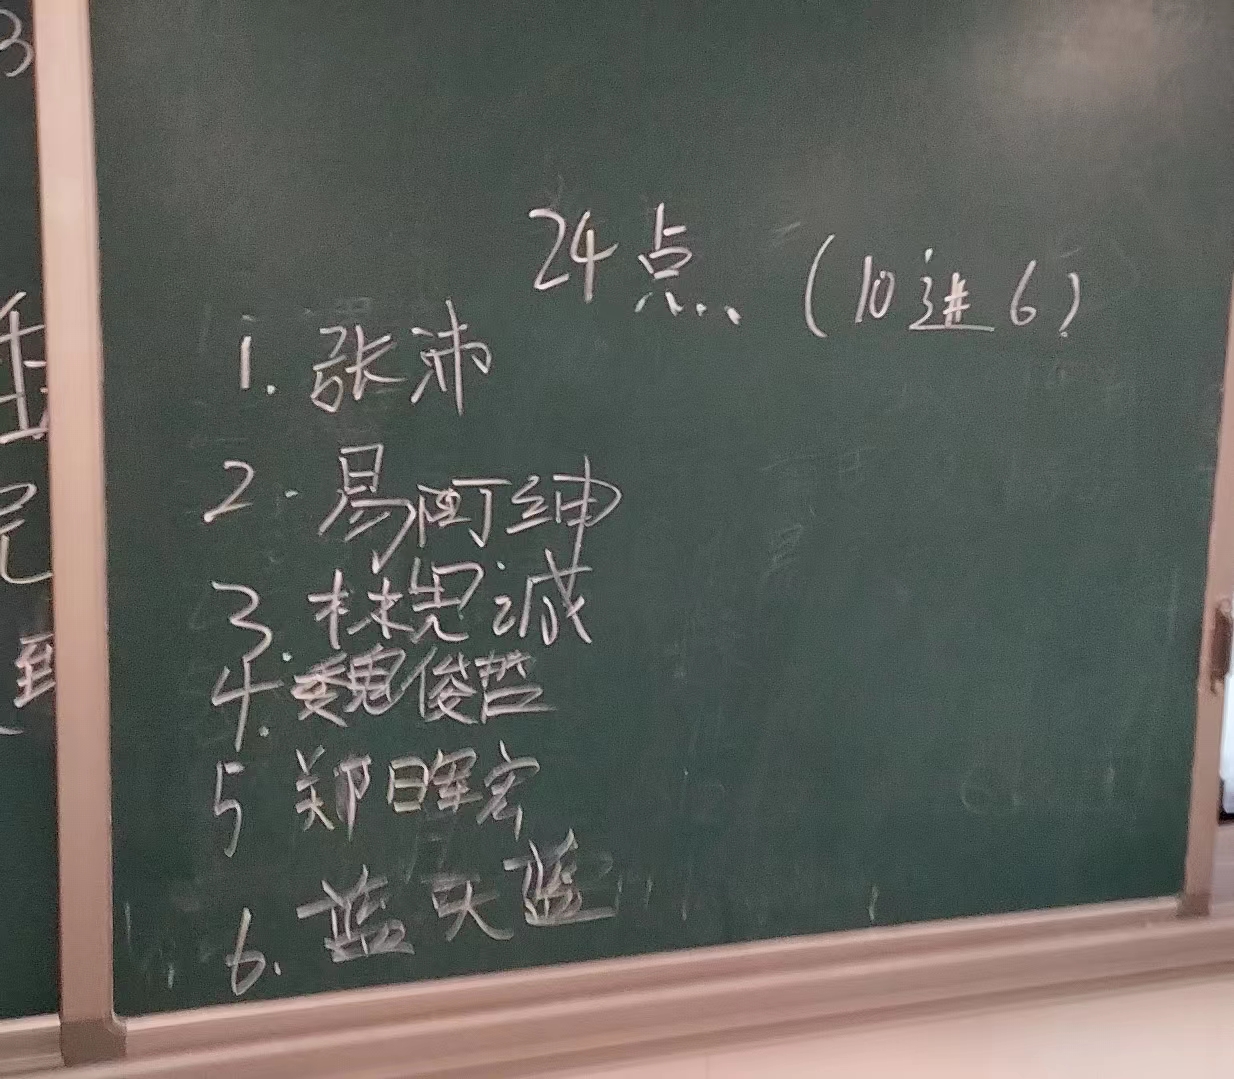 24点 (10进6)
1. 张沛
2. 易阿绅
3. 林思诚
4. 魏俊哲
5 郑晖宏
6. 蓝天蓝
3
到